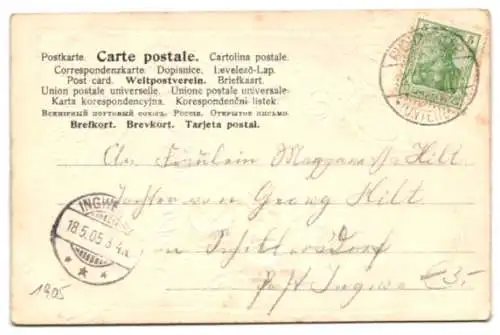 Postkarte. Carte postale. Cartolina postale.
Correspondenzkarte. Dopisnice. Levelező-Lap.
Post card. Weltpostverein. Briefkaart.
Union postale universelle. Unione postale universale.
Karta korespondencyjna. Korespondenční listek.
Всемірный почтовый союзъ. Россія. Открытое письмо.
Brefkort. Brevkort. Tarjeta postal.
5
An Fräulein Hilt
Tochter von Georg Hilt
in Schillersdorf
Post Ingw
€ 3,-
INGWE
18.5.05
1905